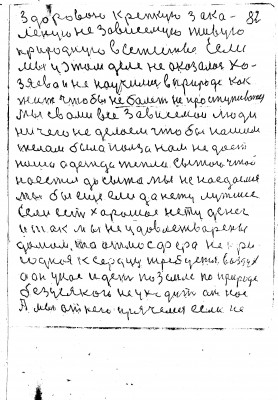 здоровою крепкую зака- 82
леную независемую живую
природную в естестве Если
мы у этом деле не оказалось хо-
зяева и не научимся в природе как
жить чтобы не болеть не простуживать
Мы свами все Зависемои люди
ничего не делаем чтобы нашим
телам была польза нам не даст
наша одежда тепла сытой чтой
наестся до сыта мы не наедаемся
мы бы еще ели да нету лутшее
Если есть хорошое нету денег
и так мы не удовлетварены
домом, та атмосфера не при
годная к серцу требуется воздух
а он у нас идет по земле по природе
безусякого неуходить от нас
А мы от него прячемся если не